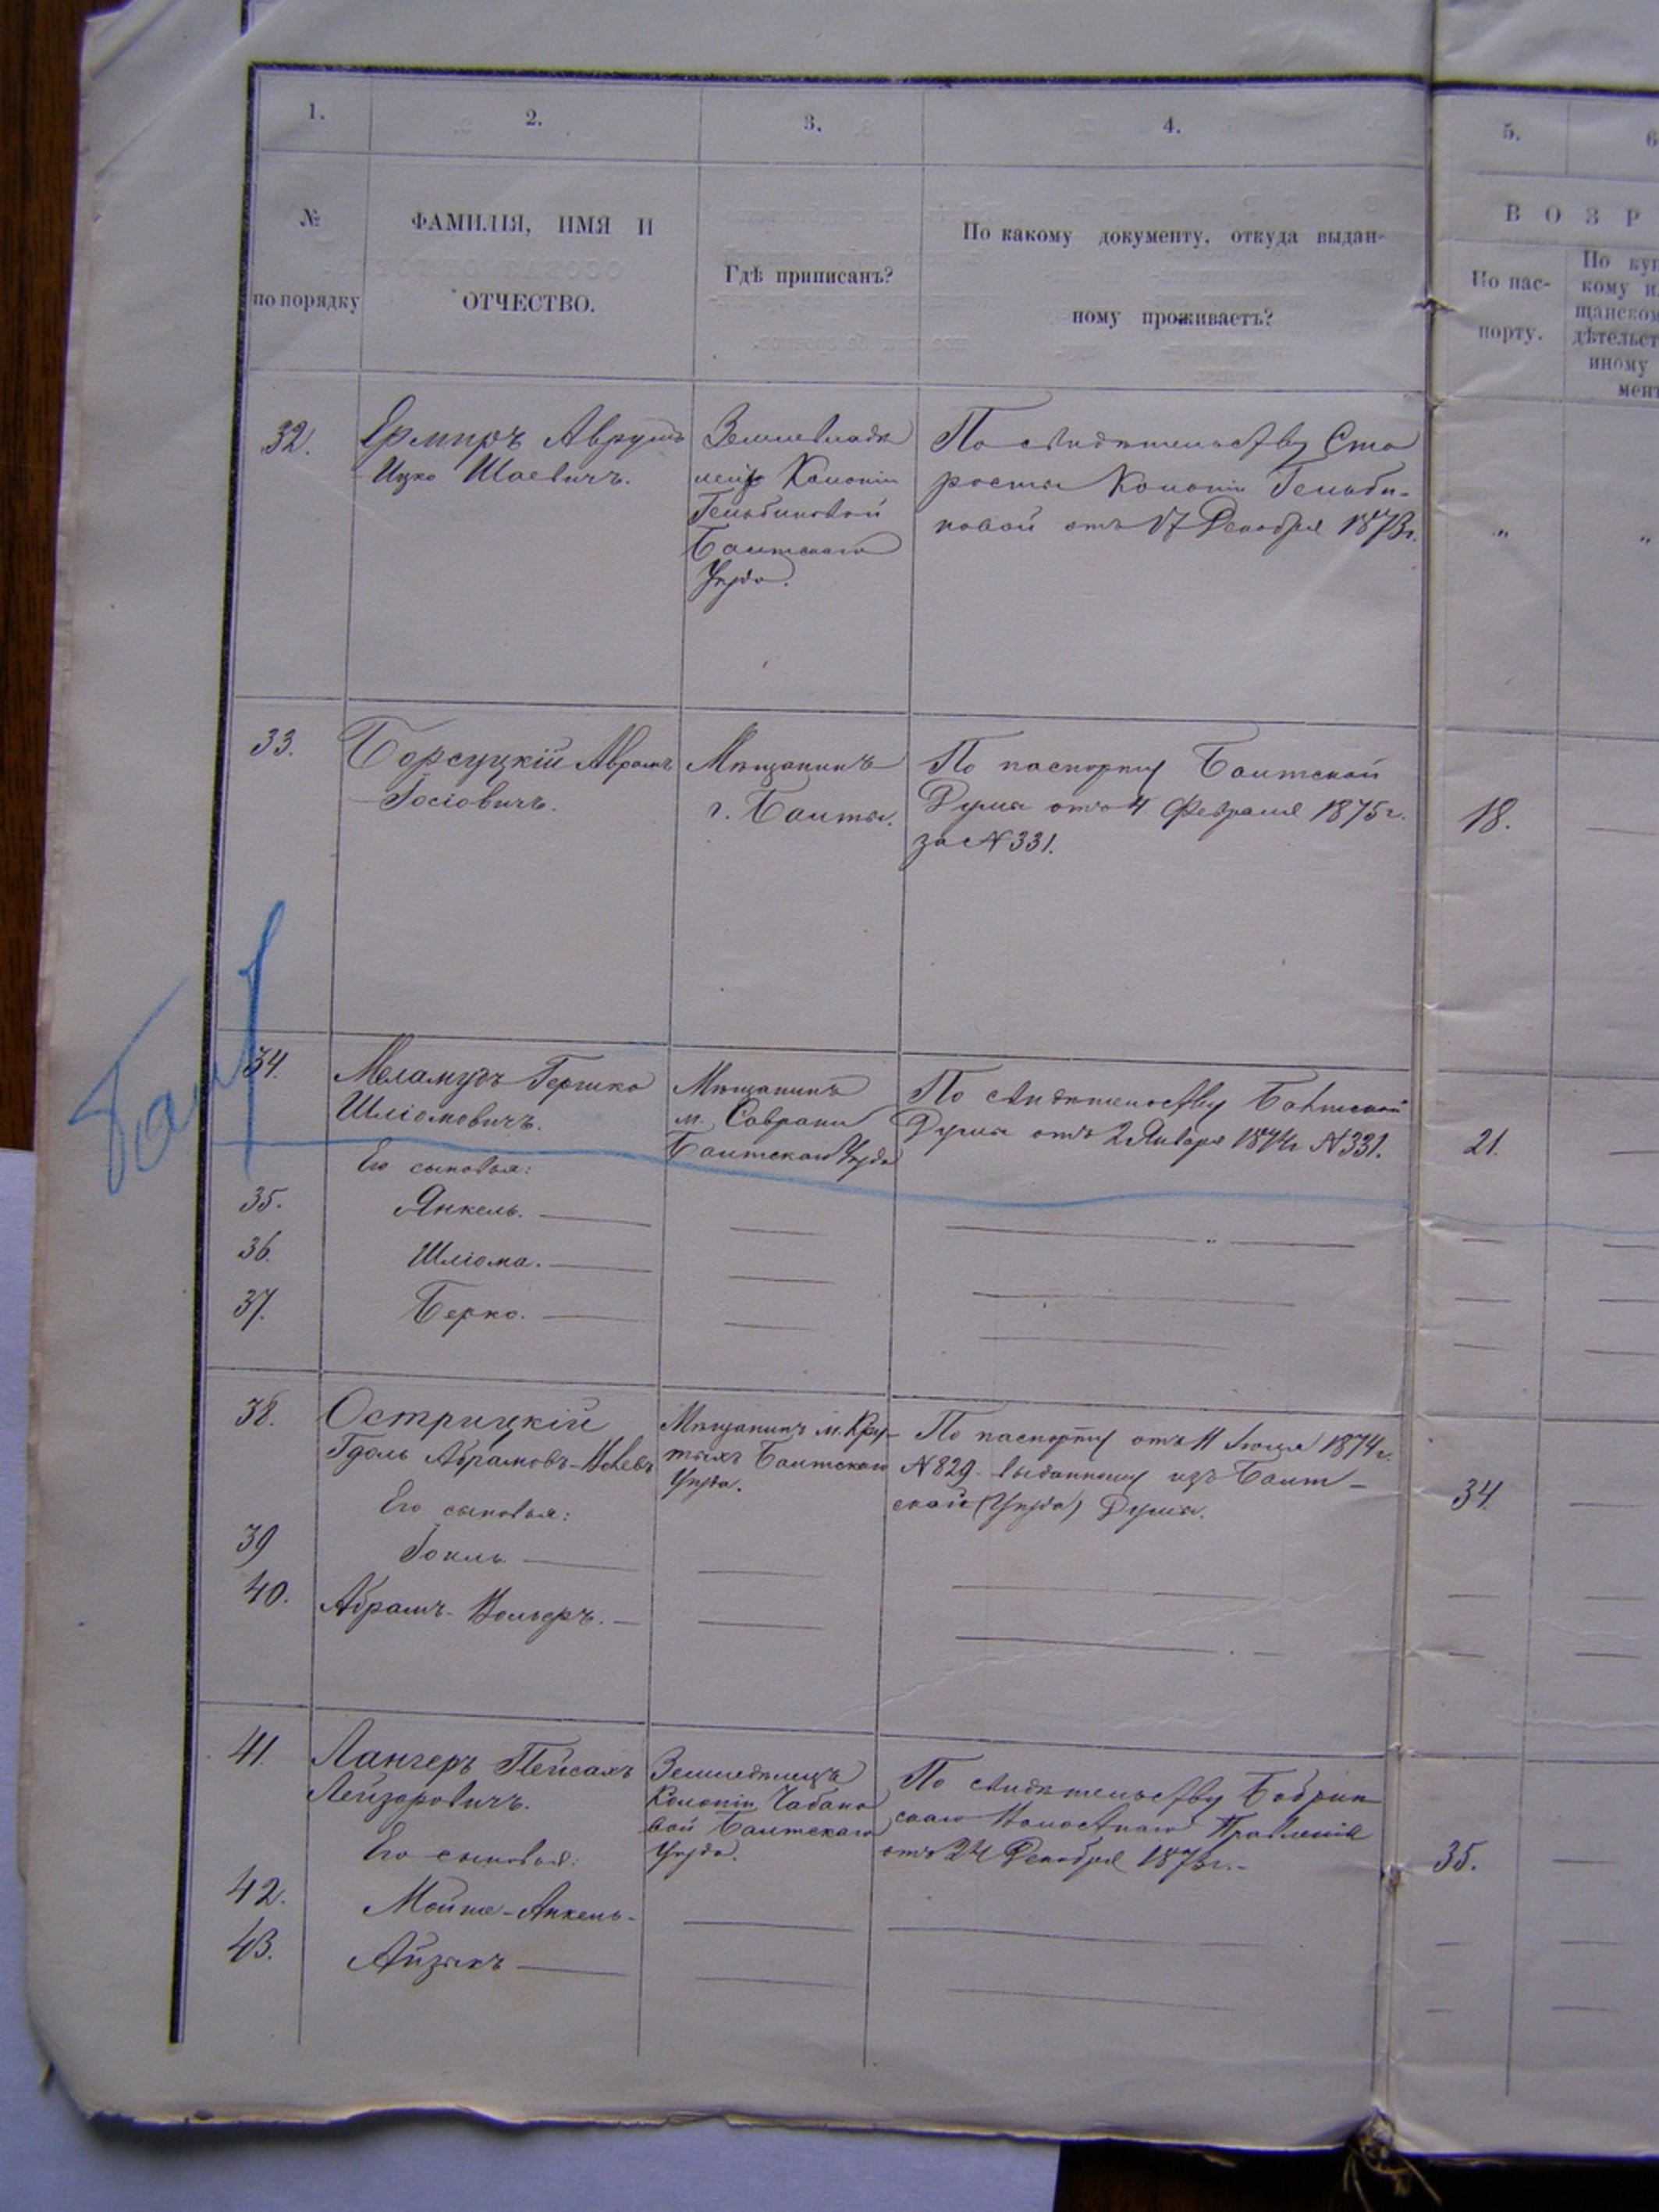 1.
2.
3.
4.
5.
6
№
по порядку
ФАМИЛІЯ, ИМЯ И
ОТЧЕСТВО.
Гдѣ приписанъ?
По какому документу, откуда выдан-
ному проживаетъ?
ВОЗР
По пас-
порту.
По куп
кому и
щанском
дѣтельст
иному
мен
32.
Аврумъ
Ицко Шаевичъ.
Колоніи
Балтскаго
Уѣзда.
По свидѣтельству Ста
росты Колоніи
отъ 17 Декабря 1873г.
"
"
33.
Борсуцкій Аврамъ
Іосіовичъ.
Мѣщанинъ
г. Балты.
По паспорту Балтской
Думы отъ 4 Февраля 1875г.
за № 331.
18.
34.
Меламудъ Гершко
Шліомовичъ.
Мѣщанинъ
м. Саврани
Балтскаго Уѣзда
По свидѣтельству Балтской
Думы отъ 2 Января 1874г № 331.
21.
Его сыновья:
35.
Янкель.
36.
Шліома.
37.
Берко.
38.
Острицкій
Гдаль Абрамовъ-
Мѣщанинъ м. Кру-
тыхъ Балтскаго
Уѣзда.
По паспорту отъ 11 Іюля 1874г.
№ 829 выданному изъ Балт-
ской (Уѣзда) Думы.
34.
Его сыновья:
39
40.
Абрамъ-
41.
Лангеръ Пейсахъ
Лейзоровичъ.
Земледѣлецъ
Колоніи Чабано
вой Балтскаго
Уѣзда.
По свидѣтельству Бобрин
скаго Волостнаго Правленія
отъ 24 Декабря 1873г.-
35.
Его сыновья:
42.
Мойше-Янкель-
43.
Айзыкъ